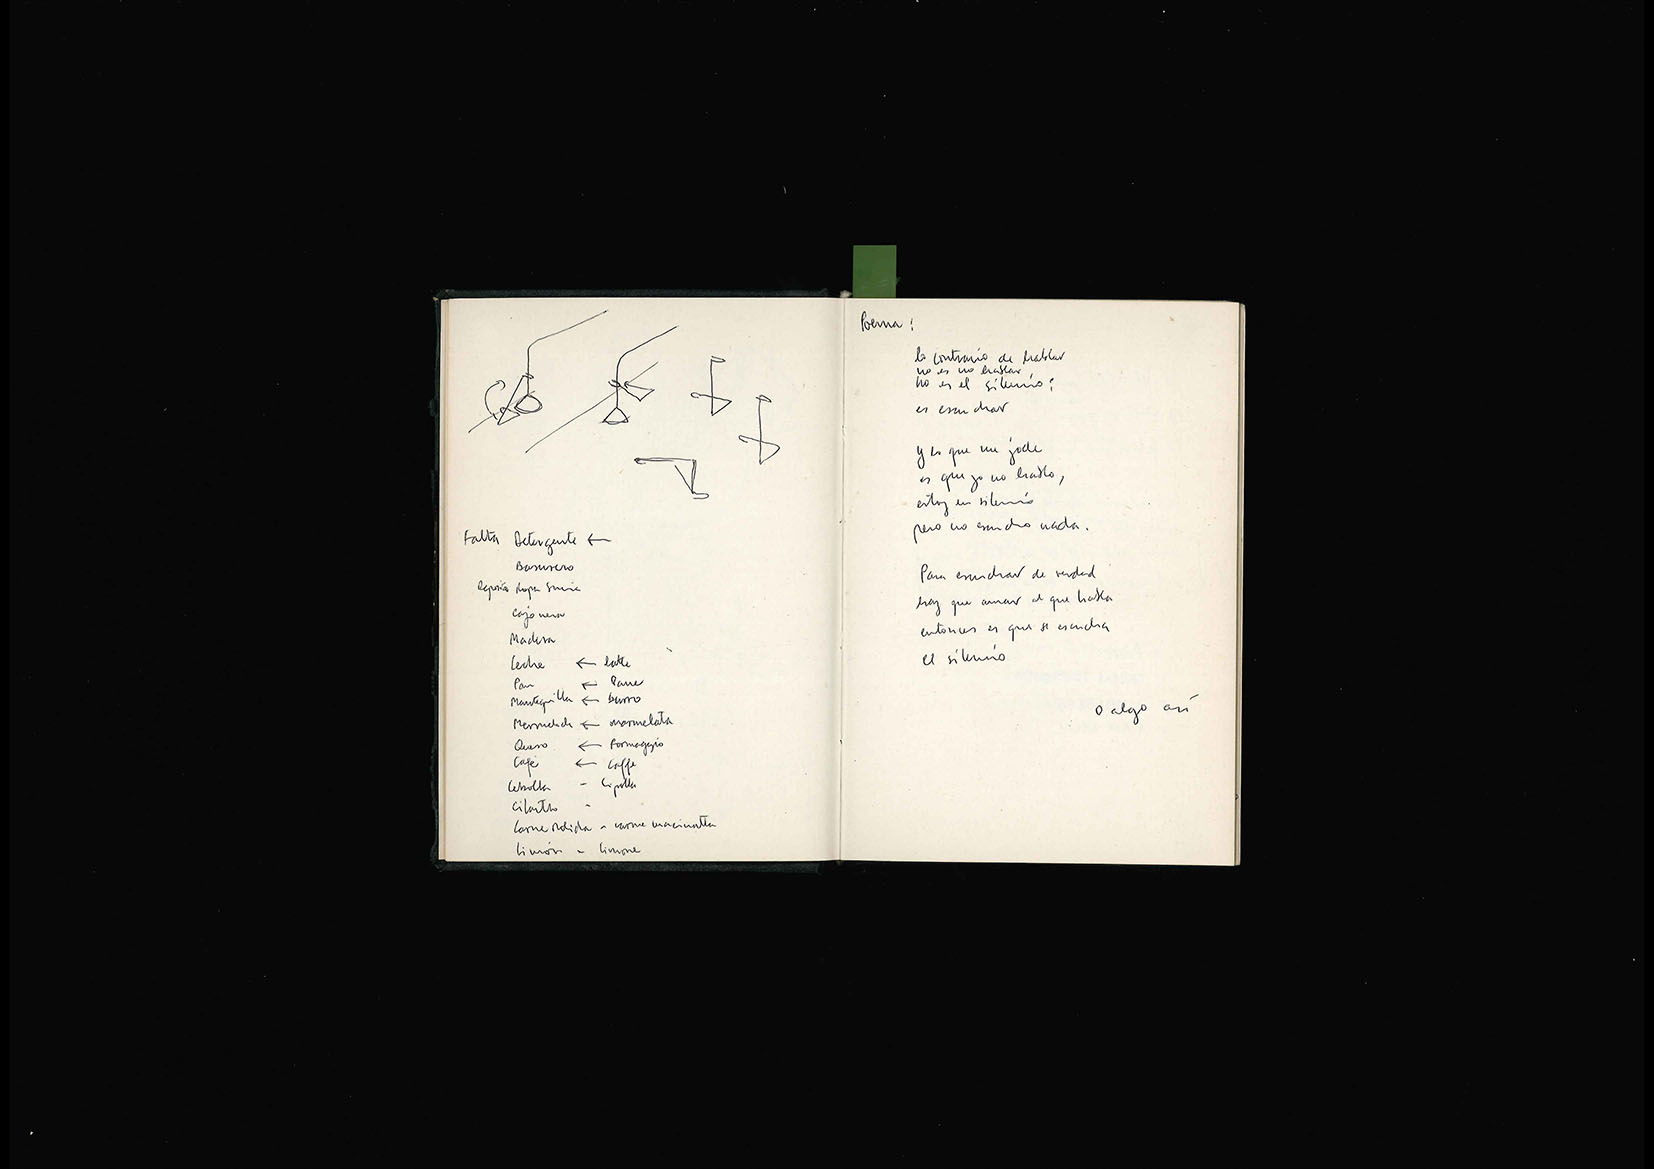 Falta Detergente ←
Basurero
Ropa Sucia
Cajonera
Madera
Leche ← latte
Pan ← Pane
Mantequilla ← burro
Mermelada ← marmelata
Queso ← Formaggio
Café ← Caffe
Cebolla - Cipolla
Cilantro -
Carne Molida - carne macinatta
Limón - limone
Poema:
lo contrario de hablar
no es no hablar
no es el silencio:
es escuchar
y lo que me jode
es que yo no hablo,
estoy en silencio
pero no escucho nada.
Para escuchar de verdad
hay que amar al que habla
entonces es que se escucha
el silencio
o algo así